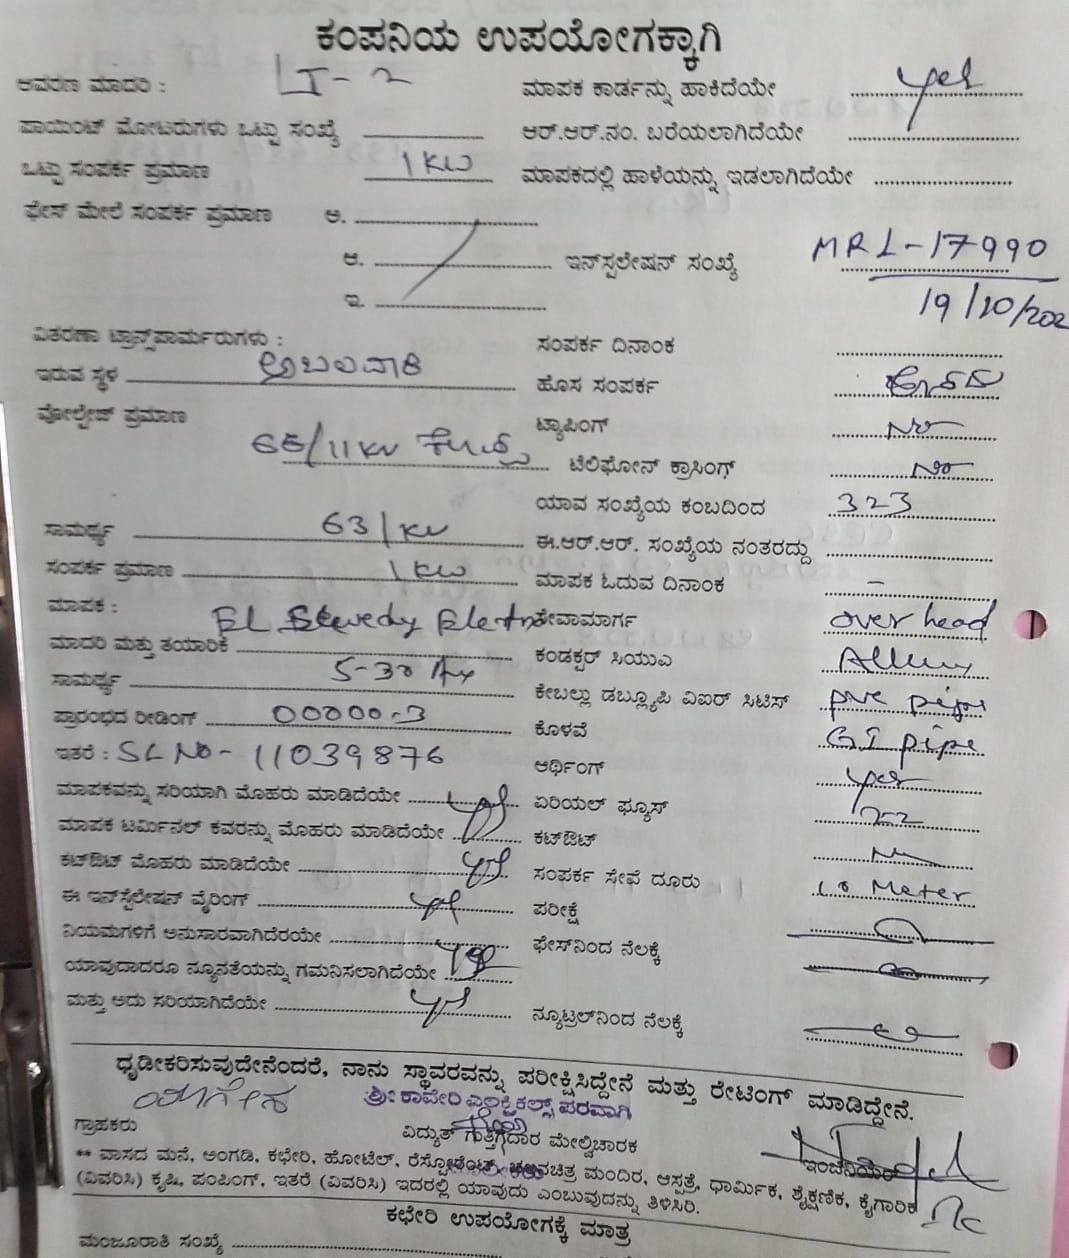 ಕಂಪನಿಯ ಉಪಯೋಗಕ್ಕಾಗಿ
ಆವರಣ ಮಾದರಿ : LT-2 ಮಾಪಕ ಕಾರ್ಡನ್ನು ಹಾಕಿದೆಯೇ yes
ಪಾಯಿಂಟ್ ಮೋಟರುಗಳು ಒಟ್ಟು ಸಂಖ್ಯೆ ಆರ್.ಆರ್.ನಂ. ಬರೆಯಲಾಗಿದೆಯೇ
ಒಟ್ಟು ಸಂಪರ್ಕ ಪ್ರಮಾಣ 1 KW ಮಾಪಕದಲ್ಲಿ ಹಾಳೆಯನ್ನು ಇಡಲಾಗಿದೆಯೇ
ಫೇಸ್ ಮೇಲೆ ಸಂಪರ್ಕ ಪ್ರಮಾಣ ಅ.
ಆ. ಇನ್‌ಸ್ಟಲೇಷನ್ ಸಂಖ್ಯೆ MRL-17990
ಇ. 19/10/202
ವಿತರಣಾ ಟ್ರಾನ್ಸ್‌ಫಾರ್ಮರುಗಳು : ಸಂಪರ್ಕ ದಿನಾಂಕ
ಇರುವ ಸ್ಥಳ ಹೊಸ ಸಂಪರ್ಕ
ವೋಲ್ಟೇಜ್ ಪ್ರಮಾಣ 66/11KV ಟ್ಯಾಪಿಂಗ್ No
ಟೆಲಿಫೋನ್ ಕ್ರಾಸಿಂಗ್ No
ಯಾವ ಸಂಖ್ಯೆಯ ಕಂಬದಿಂದ 323
ಸಾಮರ್ಥ್ಯ 63/KV ಈ.ಆರ್.ಆರ್. ಸಂಖ್ಯೆಯ ನಂತರದ್ದು
ಸಂಪರ್ಕ ಪ್ರಮಾಣ 1 KW ಮಾಪಕ ಓದುವ ದಿನಾಂಕ –
ಮಾಪಕ : ಸೇವಾಮಾರ್ಗ over head
ಮಾದರಿ ಮತ್ತು ತಯಾರಿಕೆ ಕಂಡಕ್ಟರ್ ಸಿಯುಎ
ಸಾಮರ್ಥ್ಯ 5-30 ಕೇಬಲ್ಲು ಡಬ್ಲ್ಯೂಪಿ ಎಐರ್ ಸಿಟಿಸ್ pvc pipe
ಪ್ರಾರಂಭದ ರೀಡಿಂಗ್ 00000-3 ಕೊಳವೆ GI pipe
ಇತರೆ : SL NO - 11039876 ಆರ್ಥಿಂಗ್ yes
ಮಾಪಕವನ್ನು ಸರಿಯಾಗಿ ಮೊಹರು ಮಾಡಿದೆಯೇ yes ಏರಿಯಲ್ ಫ್ಯೂಸ್
ಮಾಪಕ ಟರ್ಮಿನಲ್ ಕವರನ್ನು ಮೊಹರು ಮಾಡಿದೆಯೇ ಕಟ್‌ಔಟ್
ಕಟ್‌ಔಟ್ ಮೊಹರು ಮಾಡಿದೆಯೇ yes ಸಂಪರ್ಕ ಸೇವೆ ದೂರು 10 Meter
ಈ ಇನ್‌ಸ್ಟಲೇಷನ್ ವೈರಿಂಗ್ yes ಪರೀಕ್ಷೆ
ನಿಯಮಗಳಿಗೆ ಅನುಸಾರವಾಗಿದೆರಯೇ ಫೇಸ್‌ನಿಂದ ನೆಲಕ್ಕೆ
ಯಾವುದಾದರೂ ನ್ಯೂನತೆಯನ್ನು ಗಮನಿಸಲಾಗಿದೆಯೇ yes
ಮತ್ತು ಅದು ಸರಿಯಾಗಿದೆಯೇ yes ನ್ಯೂಟ್ರಲ್‌ನಿಂದ ನೆಲಕ್ಕೆ
ಧೃಡೀಕರಿಸುವುದೇನೆಂದರೆ, ನಾನು ಸ್ಥಾವರವನ್ನು ಪರೀಕ್ಷಿಸಿದ್ದೇನೆ ಮತ್ತು ರೇಟಿಂಗ್ ಮಾಡಿದ್ದೇನೆ.
ಶ್ರೀ ಕಾವೇರಿ ಎಲೆಕ್ಟ್ರಿಕಲ್ಸ್ ಪರವಾಗಿ
ಗ್ರಾಹಕರು ವಿದ್ಯುತ್ ಗುತ್ತಿಗೆದಾರ ಮೇಲ್ವಿಚಾರಕ ಇಂಜಿನಿಯರ್
** ವಾಸದ ಮನೆ, ಅಂಗಡಿ, ಕಛೇರಿ, ಹೋಟೆಲ್, ರೆಸ್ಟೋರೆಂಟ್, ಚಲನಚಿತ್ರ ಮಂದಿರ, ಆಸ್ಪತ್ರೆ, ಧಾರ್ಮಿಕ, ಶೈಕ್ಷಣಿಕ, ಕೈಗಾರಿಕೆ
(ವಿವರಿಸಿ) ಕೃಷಿ, ಪಂಪಿಂಗ್, ಇತರೆ (ವಿವರಿಸಿ) ಇದರಲ್ಲಿ ಯಾವುದು ಎಂಬುವುದನ್ನು ತಿಳಿಸಿರಿ.
ಕಛೇರಿ ಉಪಯೋಗಕ್ಕೆ ಮಾತ್ರ
ಮಂಜೂರಾತಿ ಸಂಖ್ಯೆ